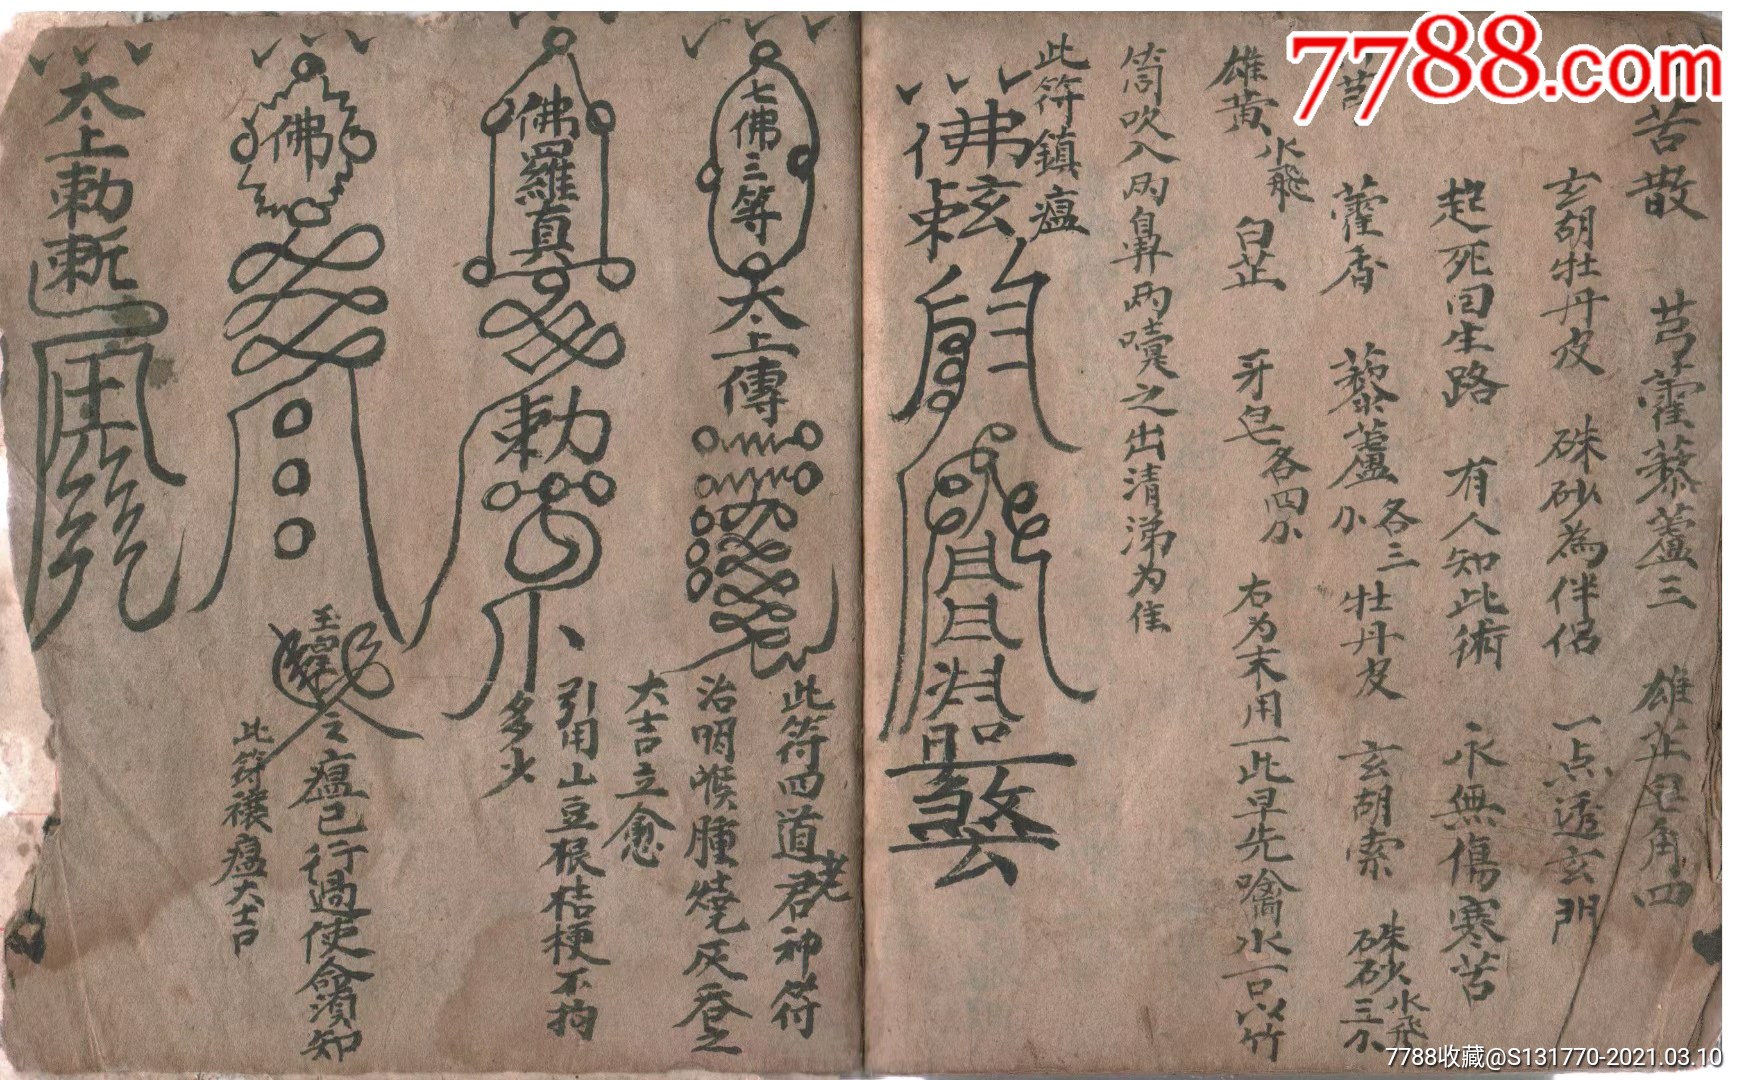 7788.com
苦散 芎藿藜蘆三 雄芷皂角四
玄胡牡丹皮 硃砂為伴侶 一点透玄門
起死回生路 有人知此術 永無傷寒苦
芎 藿香 藜蘆各三小 牡丹皮 玄胡索 硃砂水飛三小
雄黃水飛 白芷 牙皂各四小 右为末用一此早先噙水一口以竹
筒吹入两鼻两嚏之出清涕为佳
此符鎮瘟
佛
七佛三等
太上傳
此符四道老君神符
治咽喉腫燒灰吞之
大吉立愈
引用山豆根桔梗不拘
多少
佛羅真
勅
佛
之瘟已行過使命須知
此符禳瘟大吉
太上勅
7788收藏@S131770-2021.03.10